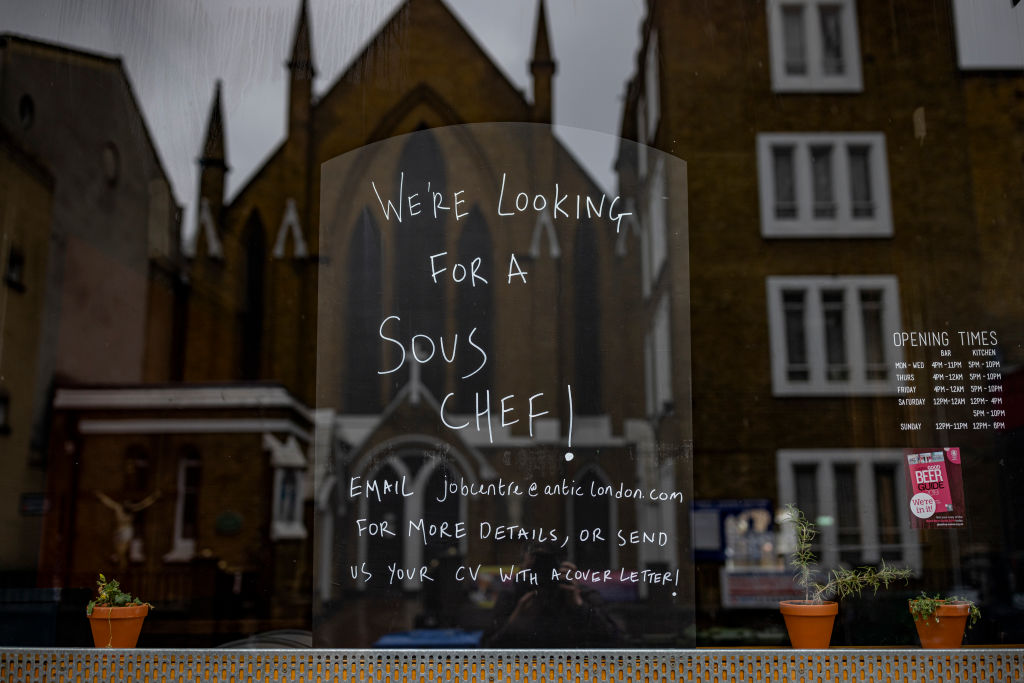 WE'RE LOOKING
FOR A
SOUS
CHEF!
EMAIL jobcentre@anticlondon.com
FOR MORE DETAILS, OR SEND
US YOUR CV WITH A COVER LETTER!
OPENING TIMES
BAR KITCHEN
MON-WED 4PM-11PM 5PM-10PM
THURS 4PM-12AM 5PM-10PM
FRIDAY 4PM-12AM 5PM-10PM
SATURDAY 12PM-12AM 12PM-4PM
5PM-10PM
SUNDAY 12PM-11PM 12PM-6PM
GOOD
BEER
GUIDE
We're
in it!